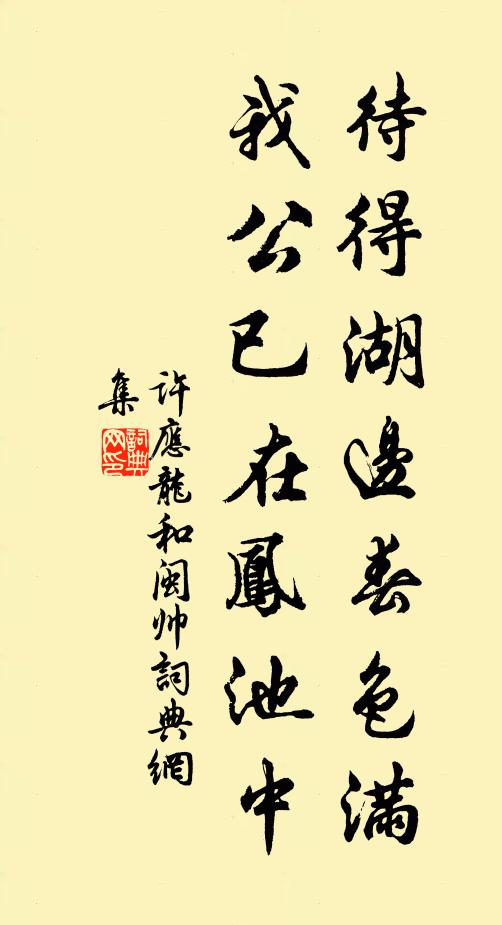 待得湖邊春色滿
我公已在鳳池中
許應龍和閩帅詞典網
集
詞典網印